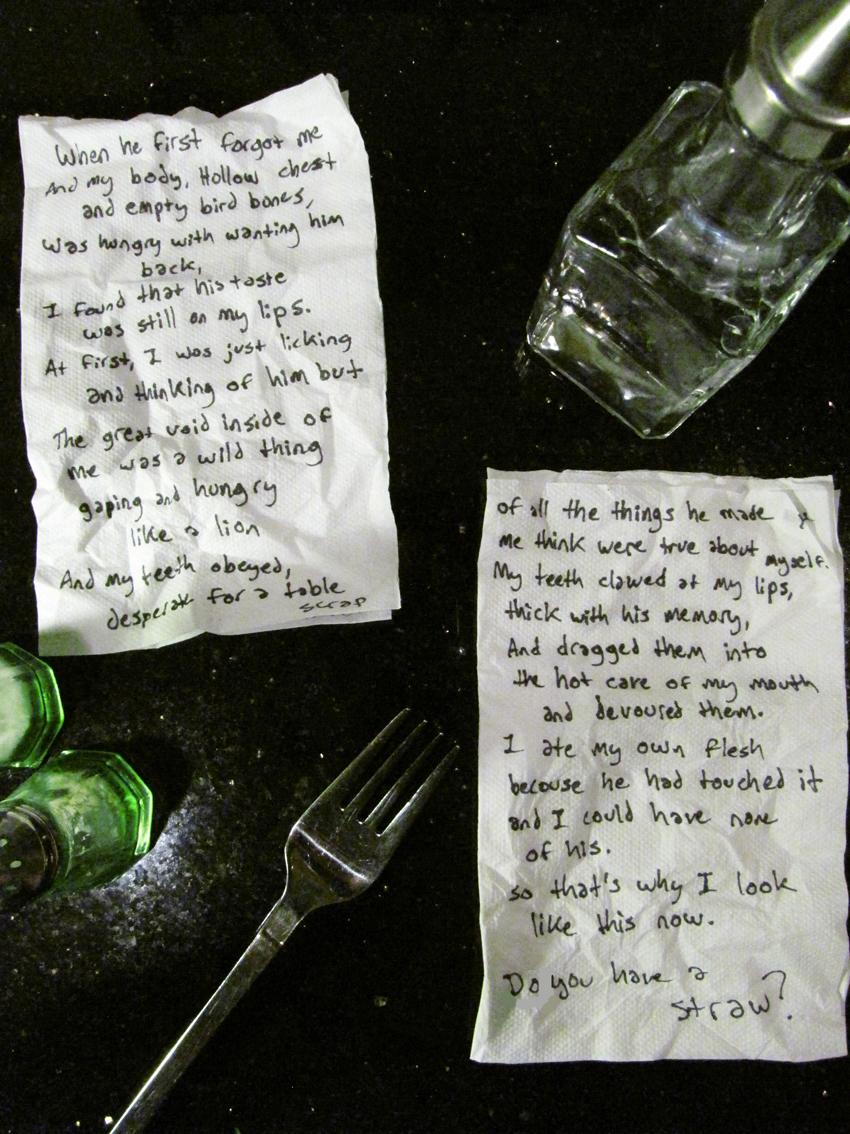 When he first forgot me
And my body, Hollow chest
and empty bird bones,
was hungry with wanting him
back,
I found that his taste
was still on my lips.
At first, I was just licking
and thinking of him but
The great void inside of
me was a wild thing
gaping and hungry
like a lion
And my teeth obeyed,
desperate for a table
scrap
of all the things he made
me think were true about myself.
My teeth clawed at my lips,
thick with his memory,
And dragged them into
the hot care of my mouth
and devoured them.
I ate my own flesh
because he had touched it
and I could have none
of his.
so that's why I look
like this now.
Do you have a
straw?